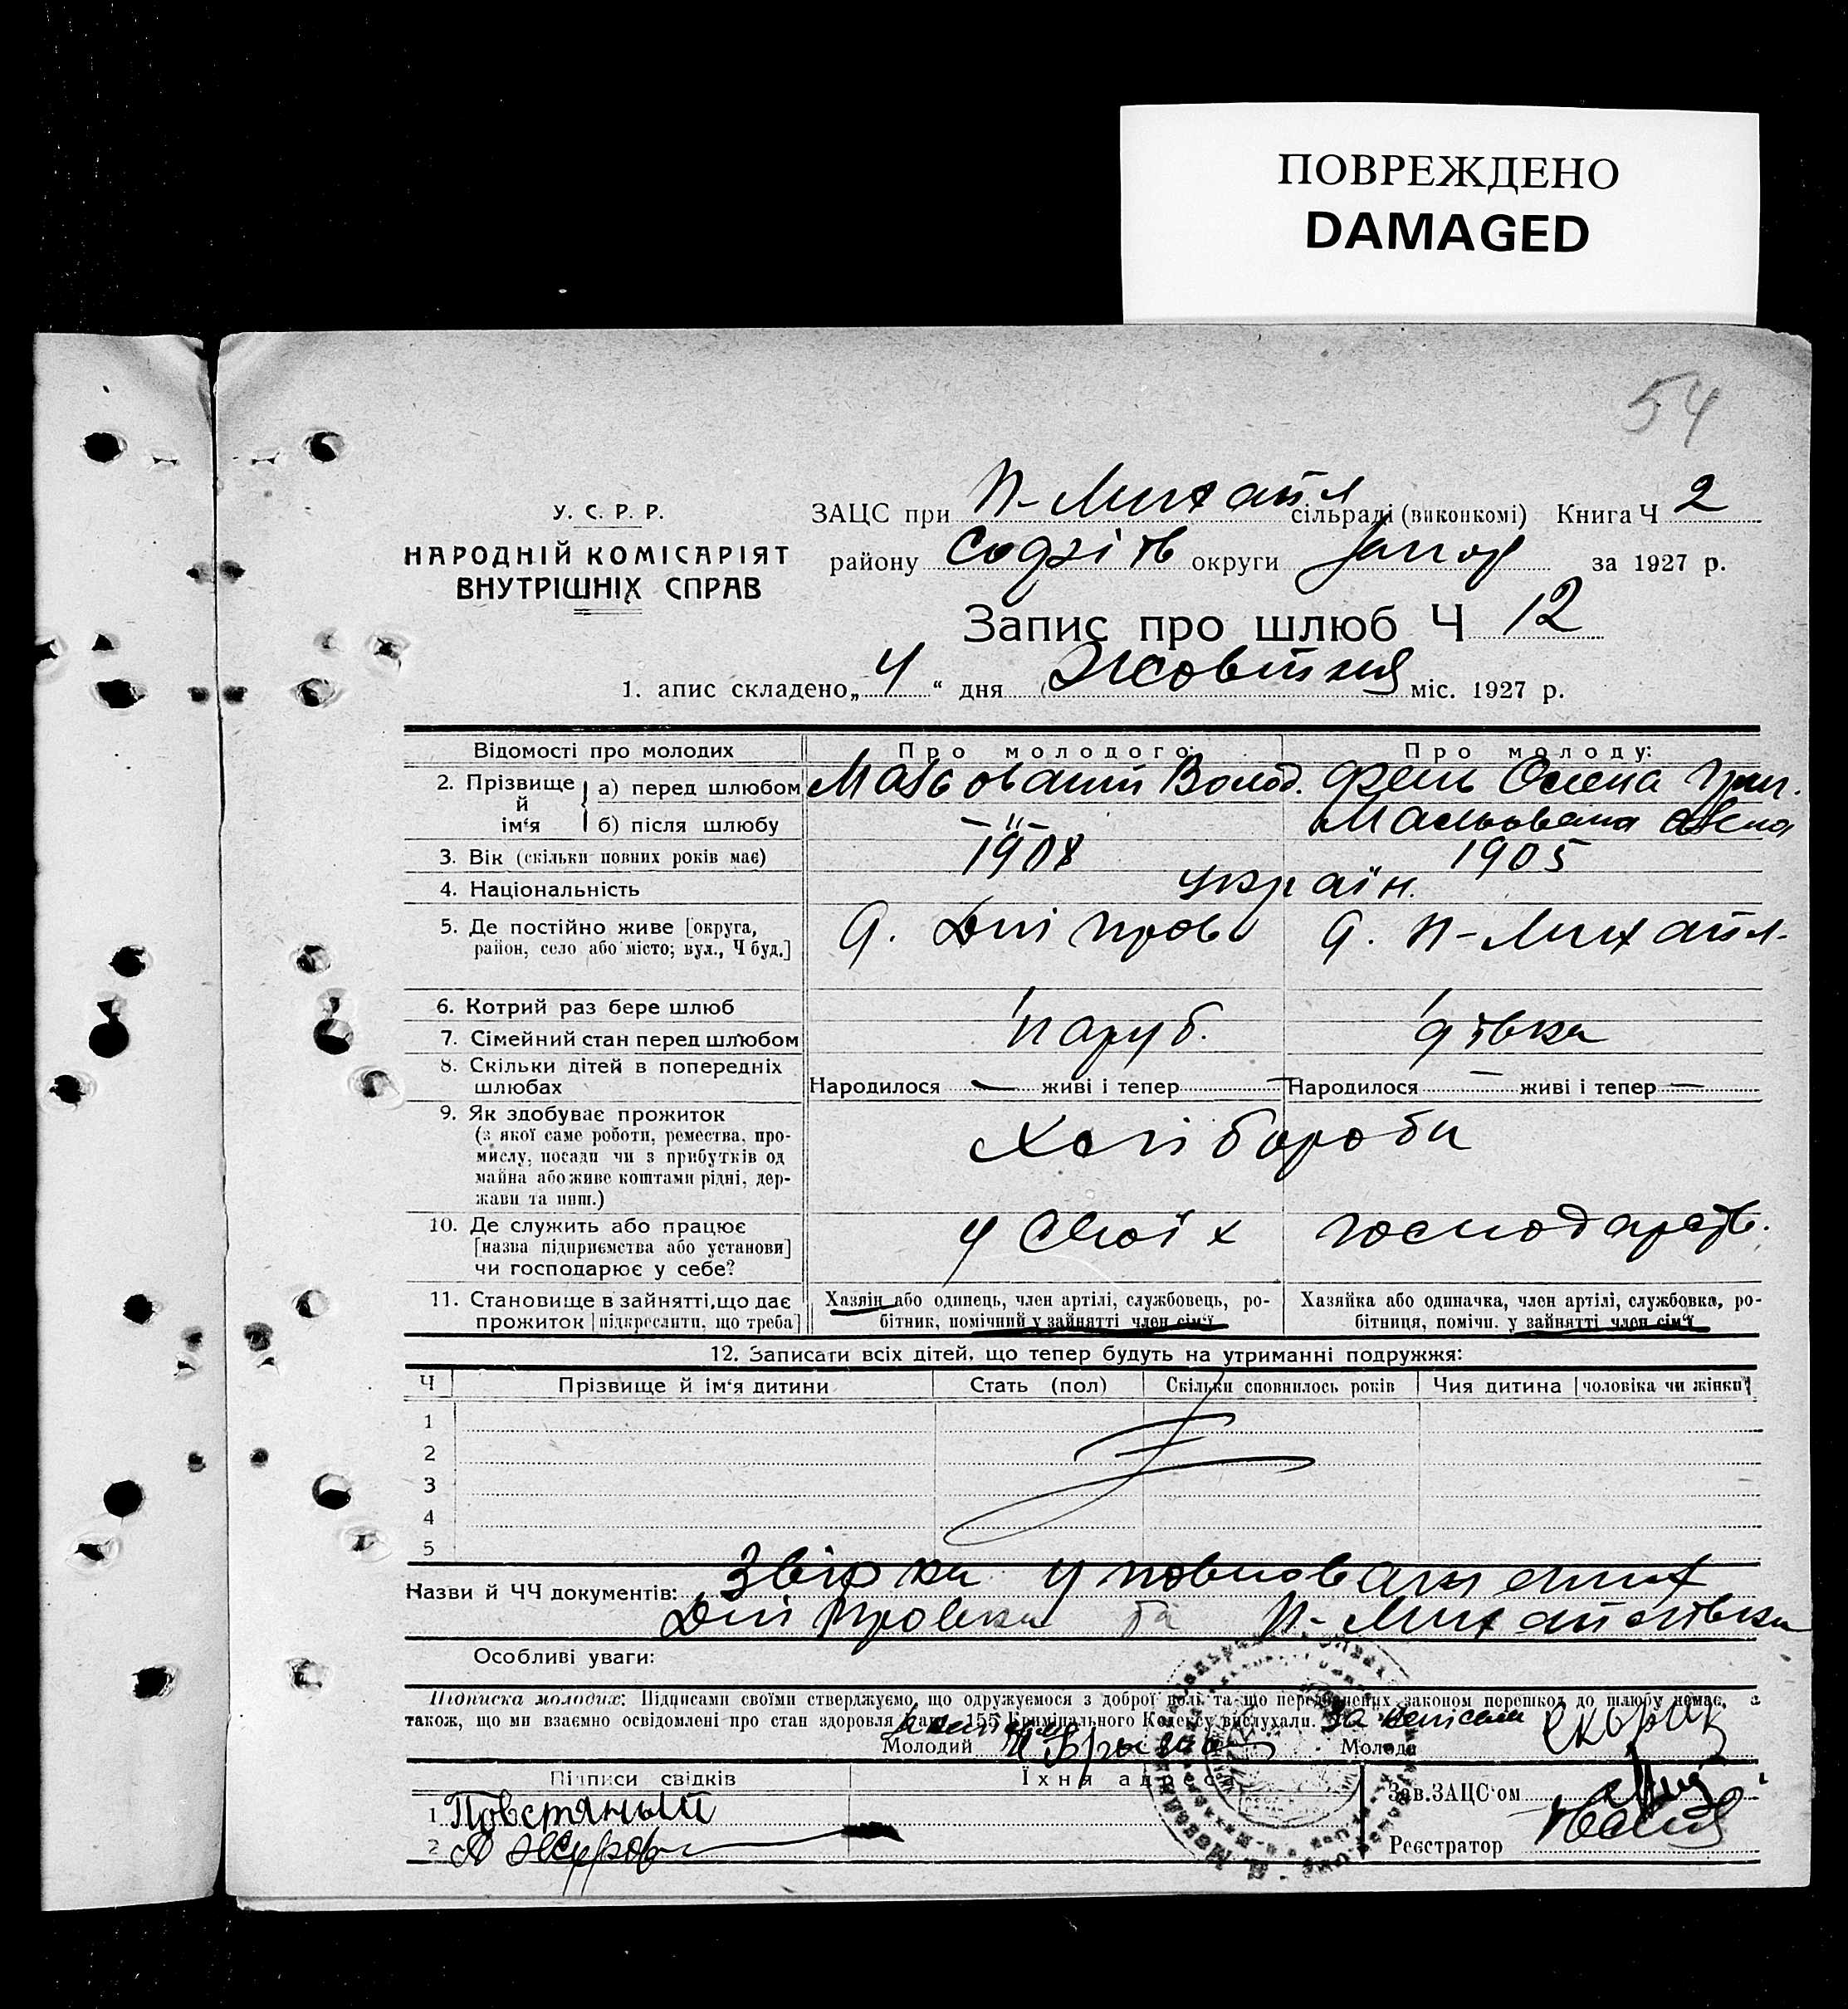 ПОВРЕЖДЕНО
DAMAGED
54
У. С. Р. Р.
НАРОДНІЙ КОМІСАРІЯТ
ВНУТРІШНІХ СПРАВ
ЗАЦС при Н-Михайл сільраді (виконкомі) Книга Ч 2
району Софіїв округи Запор за 1927 р.
Запис про шлюб Ч 12
1. апис складено „ 4 “ дня Жовтня міс. 1927 р.
Відомості про молодих Про молодого: Про молоду:
2. Прізвище й ім‘я
а) перед шлюбом Мальований Волод. Фень Олена Григ.
б) після шлюбу –"– Мальована
3. Вік (скільки повних років має) 1908 1905
4. Національність україн.
5. Де постійно живе [округа, район, село або місто; вул., Ч буд.] Дніпровк Н-Михайл.
6. Котрий раз бере шлюб 1 1
7. Сімейний стан перед шлюбом паруб. дівка
8. Скільки дітей в попередніх шлюбах Народилося — живі і тепер — Народилося — живі і тепер —
9. Як здобуває прожиток
(з якої саме роботи, ремества, про-
мислу, посади чи з прибутків од
майна або живе коштами рідні, дер-
жави та инш.)
Хліборобы
10. Де служить або працює
[назва підприємства або установи]
чи господарює у себе?
у своїх господарств.
11. Становище в зайнятті, що дає прожиток [підкреслити, що треба]
Хазяїн або одинець, член артілі, службовець, ро-
бітник, помічний у зайнятті член сім‘ї
Хазяйка або одиначка, член артілі, службовка, ро-
бітниця, помічн. у зайнятті член сім‘ї
12. Записати всіх дітей, що тепер будуть на утриманні подружжя:
Ч Прізвище й ім‘я дитини Стать (пол) Скільки сповнилось років Чия дитина [чоловіка чи жінки]
1
2
3
4
5
Назви й ЧЧ документів: Звірки уповноважених
Дніпровки та Н-Михайлівки
Особливі уваги:
Підписка молодих: Підписами своїми стверджуємо, що одружуємося з доброї волі та що передбачених законом перешкод до шлюбу немає, а
також, що ми взаємно освідомлені про стан здоровля й арт. 155 Кримінального Кодексу вислухали.
Молодий Молода
Підписи свідків Їхня адреса
Зав. ЗАЦС‘ом
1 Повстяный
2
Реєстратор